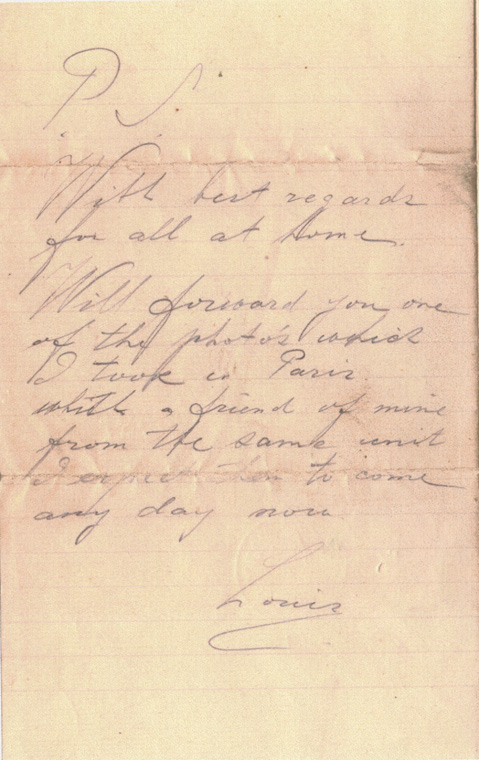 P S.
With best regards
for all at Home.
Will forward you one
of the photo's which
I took in Paris.
whith a friend of mine
from the same unit
I expect them to come
any day now
Louis